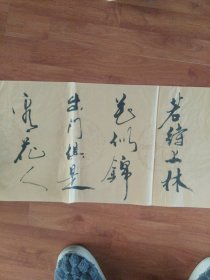 若待上林
花似錦
出门俱是
看花人